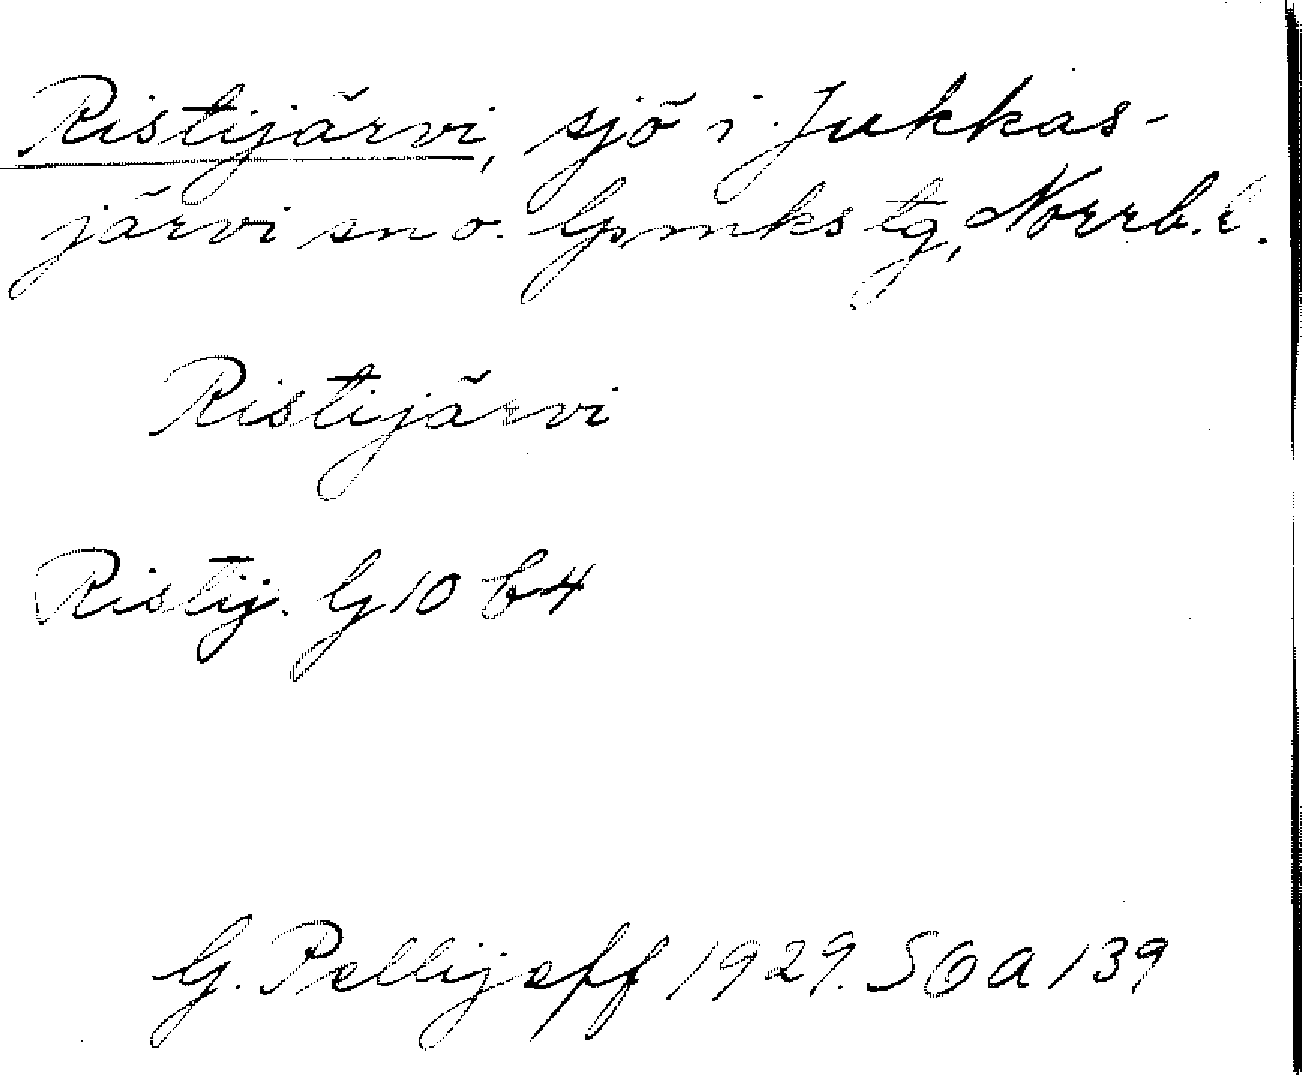 Ristijärvi, sjö i Jukkas-
järvi sn o. lpmks tg, Norrb. l.
Ristijärvi
Ristij. G 10 b 4
G. Pellijeff 1929. SOA 139